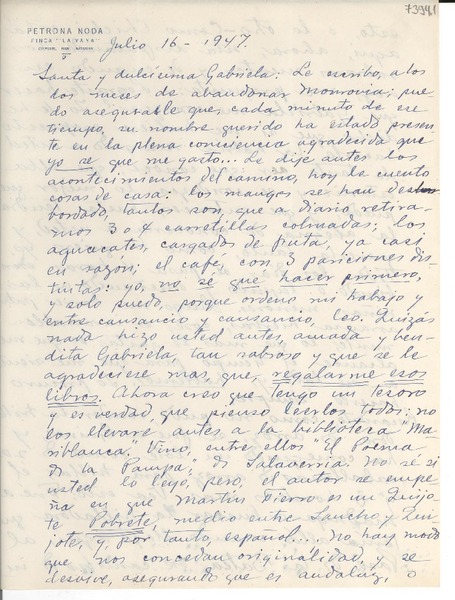 73941
PETRONA NODA
FINCA "LA YAYA"
Julio 16 - 1947.
Santa y dulcísima Gabriela: Le escribo, a los
dos meses de abandonar Monrovia; pue-
do asegurarle que, cada minuto de ese
tiempo, su nombre querido ha estado presen-
te en la plena conciencia agradecida que
yo se que me gasto... Le dije antes los
acontecimientos del camino, hoy le cuento
cosas de casa: los mangos se han des
bordado, tantos son, que a diario retira-
mos 3 o 4 carretillas colmadas; los
aguacates, cargados de fruta, ya casi
en sazón; el café, con 3 pariciones dis-
tintas: yo, no sé qué hacer primero,
y solo puedo, porque ordeno mi trabajo y
entre cansancio y cansancio, leo. Quizás
nada hizo usted antes, amada y ben-
dita Gabriela, tan sabroso y que se le
agradeciese mas, que, regalarme esos
libros. Ahora creo que tengo un tesoro
y es verdad que pienso leerlos todos: no
los llevaré antes a la biblioteca "Ma-
riblanca". Vino, entre ellos "El Poema
de la Pampa", de Salaverría. No sé si
usted lo leyó, pero, el autor se empe-
ña en que Martín Fierro es un Quijo-
te Pobrete, medio entre Sancho y Qui-
jote, y, por tanto, español.... No hay modo
que nos concedan originalidad, y se
desvive, asegurando que es andaluz, o